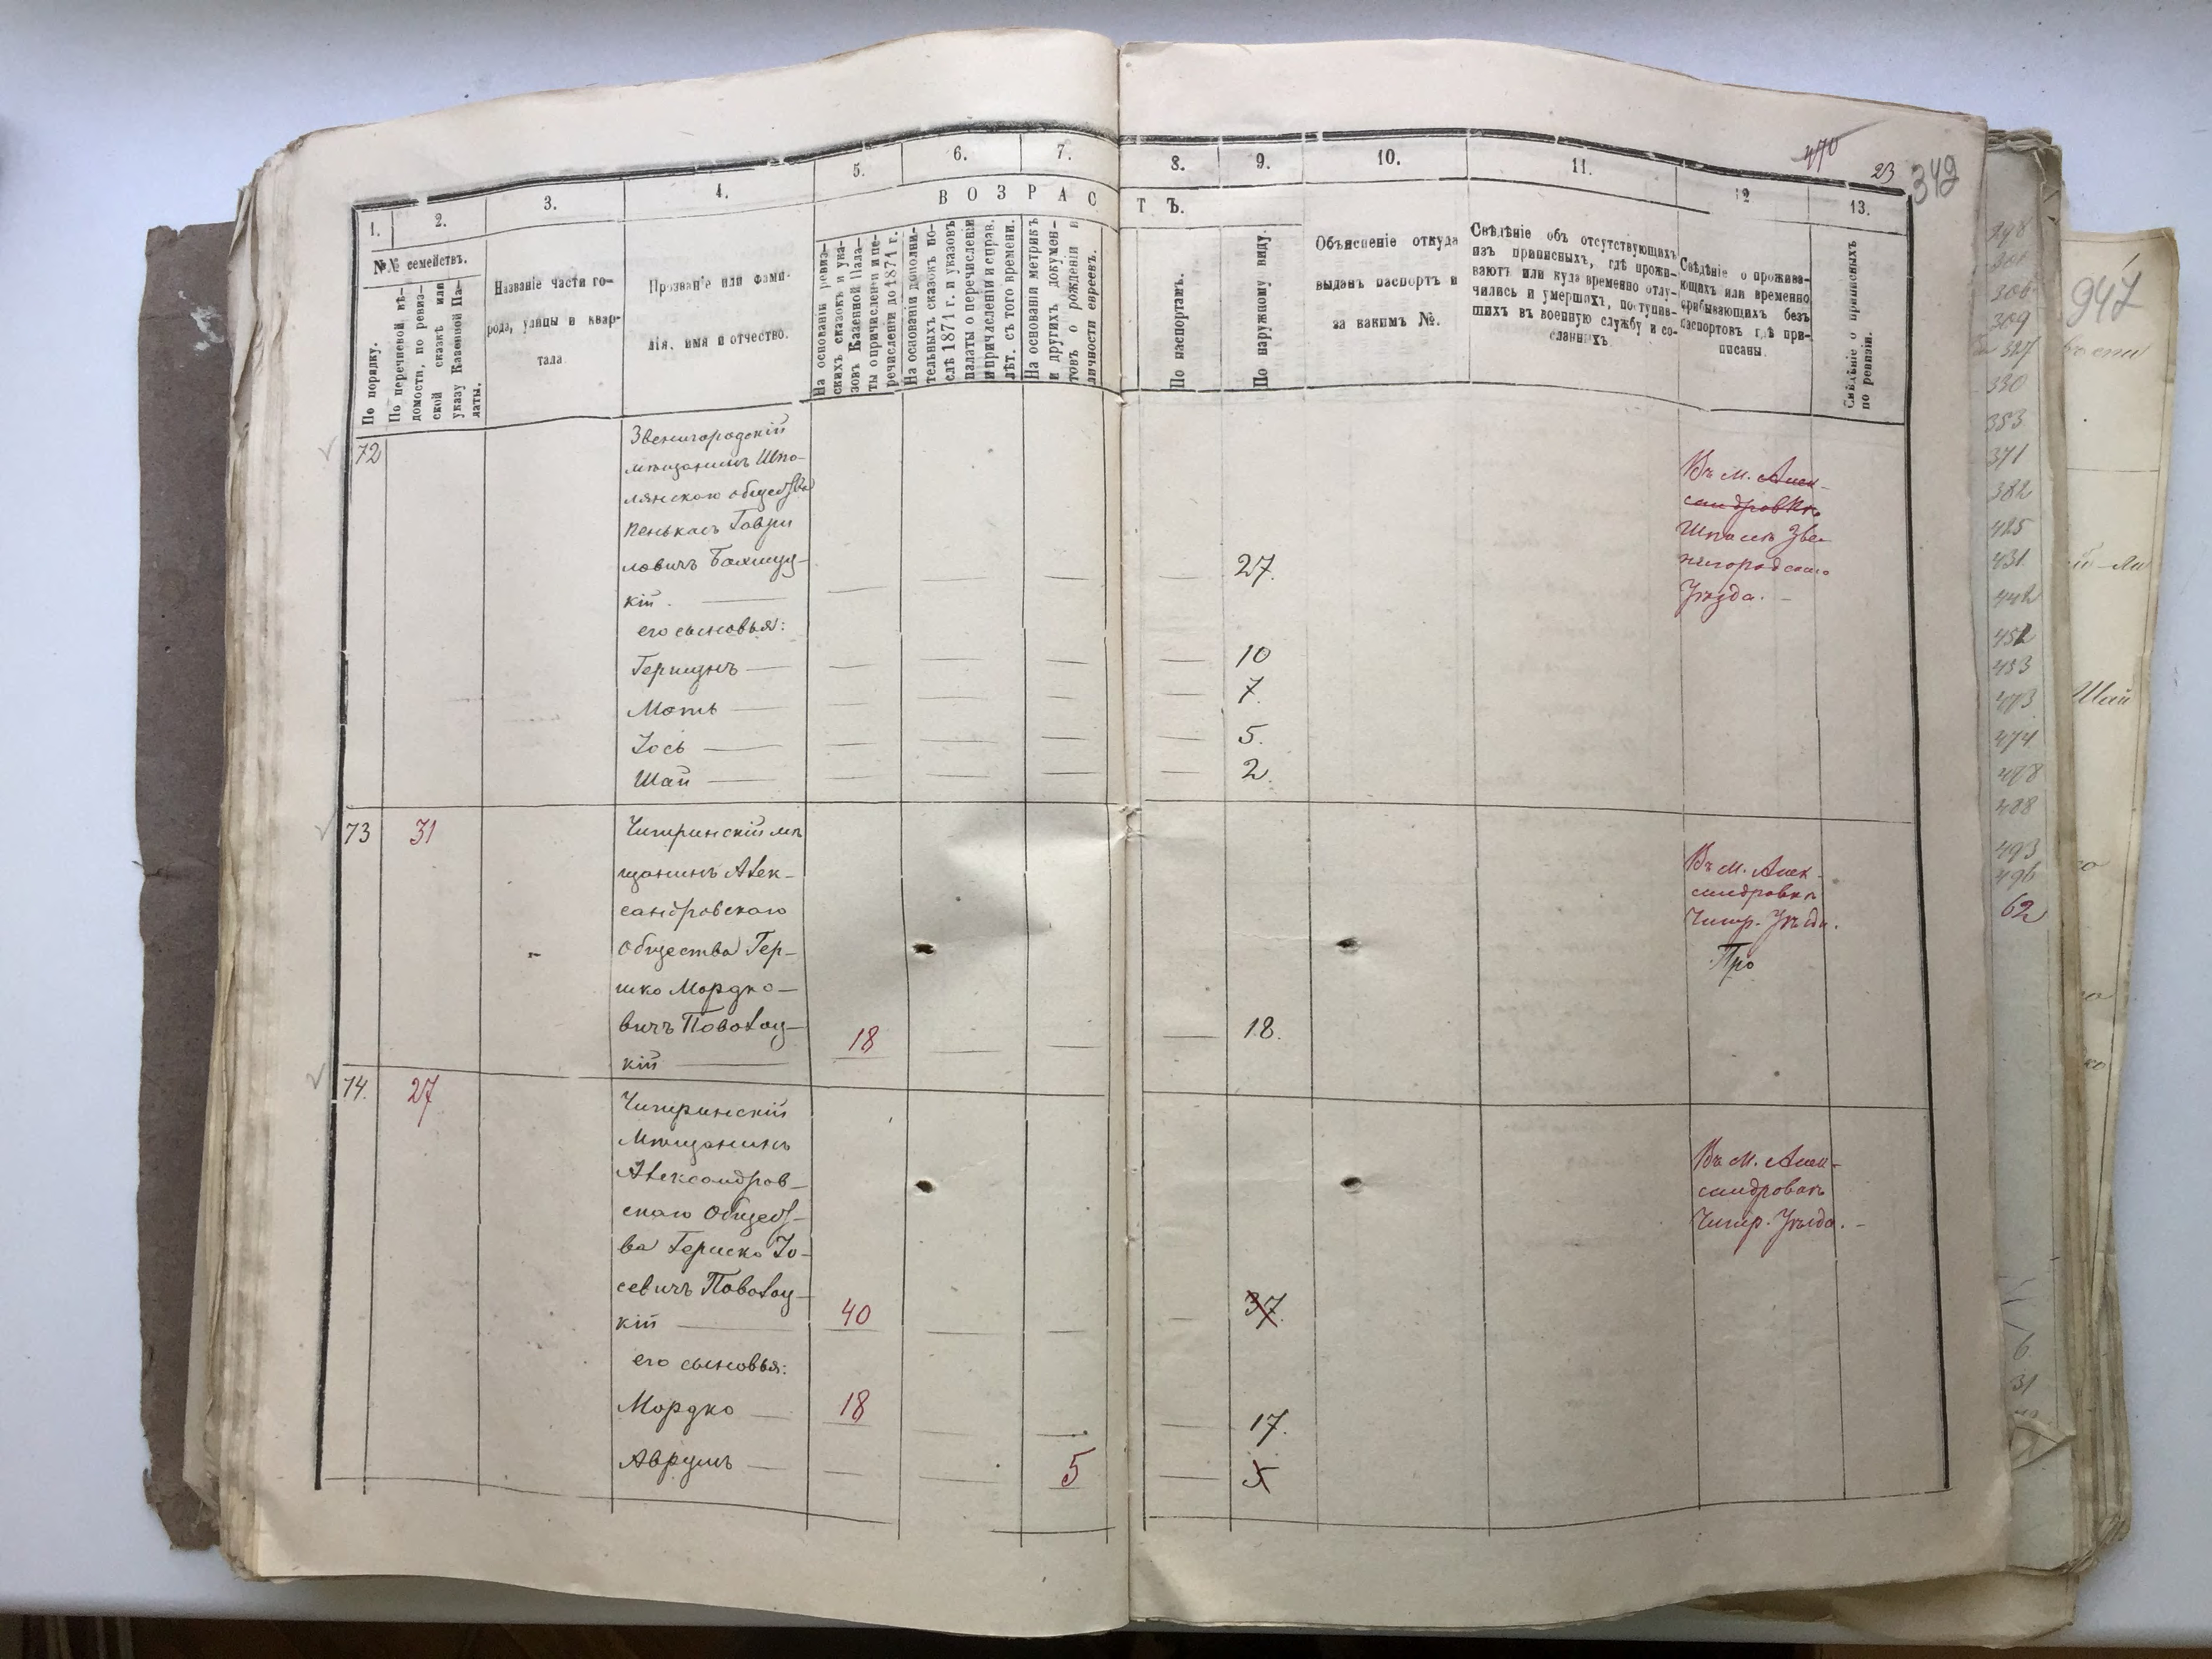 1.
2.
3.
4.
5.
6.
7.
8.
9.
10.
11.
12
13.
470
23
349
ВОЗРАСТЪ.
№№ семействъ.
По порядку.
По перечневой вѣ-
домости, по ревиз-
ской сказкѣ или
указу Казенной Па-
латы.
Названіе части го-
рода, улицы и квар-
тала
Прозваніе или фами-
лія, имя и отчество.
На основаніи ревиз-
скихъ сказокъ и ука-
зовъ Казенной Пала-
ты о причисленіи и пе-
речисленіи до 1871 г.
На основаніи дополни-
тельныхъ сказокъ по-
слѣ 1871 г. и указовъ
палаты о перечисленіи
и причисленіи и справ.
лѣт. съ того времени.
На основаніи метрикъ
и другихъ докумен-
товъ о рожденіи и
личности евреевъ.
По паспортамъ.
По наружному виду.
Объясненіе откуда
выданъ паспортъ и
за какимъ №.
Свѣдѣніе объ отсутствующихъ
изъ приписныхъ, гдѣ прожи-
ваютъ или куда временно отлу-
чились и умершихъ, поступив-
шихъ въ военную службу и со-
сланныхъ.
Свѣдѣніе о прожива-
ющихъ или временно
прибывающихъ безъ
паспортовъ гдѣ при-
писаны.
Свѣдѣніе о приписныхъ
по ревизіи.
72
Звенигородскій
мѣщанинъ Шпо-
лянского общества
Пенькасъ Гаври
ловичъ
кій. — 27.
его сыновья:
Гершунъ — 10
Моть — 7.
Іось — 5.
Шай — 2.
Въ м. Алек-
сандровкѣ
Шполѣ Зве-
нигородскаго
Уѣзда. –
73 31
Чигиринскій мѣ
щанинъ Алек-
сандровского
Общества Гер-
шко Мордко-
вичъ Поволоц-
кій — 18 — 18.
Въ м. Алек-
сандровкѣ
Чигир. Уѣзда.
Про
74. 27
Чигиринскій
Мѣщанинъ
Александров-
скаго Общест-
ва Гершко Іо-
севичъ Поволоц-
кій — 40 — 37.
его сыновья:
Мордко — 18 — 17.
Аврумъ — 5 — 5
Въ м. Алек-
сандровкѣ
Чигир. Уѣзда. –
298
301
306
309
327
330
353
371
382
425
431
442
452
453
473
474
478
488
493
496
62
6
31
947
Шай